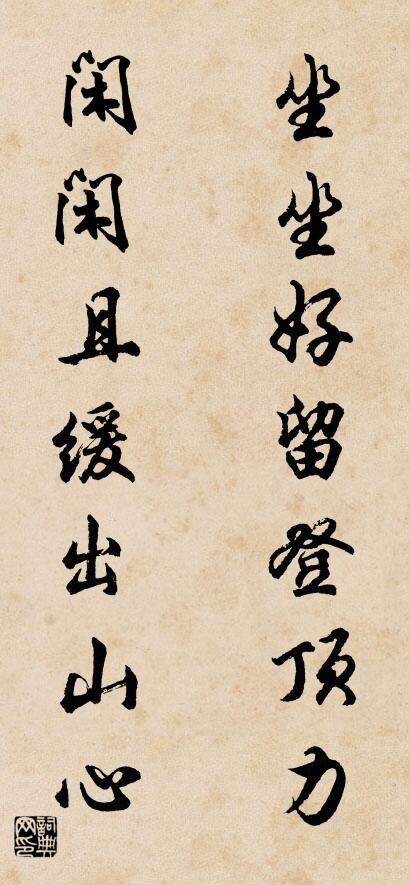 坐坐好留登顶力
闲闲且缓出山心
词典网印